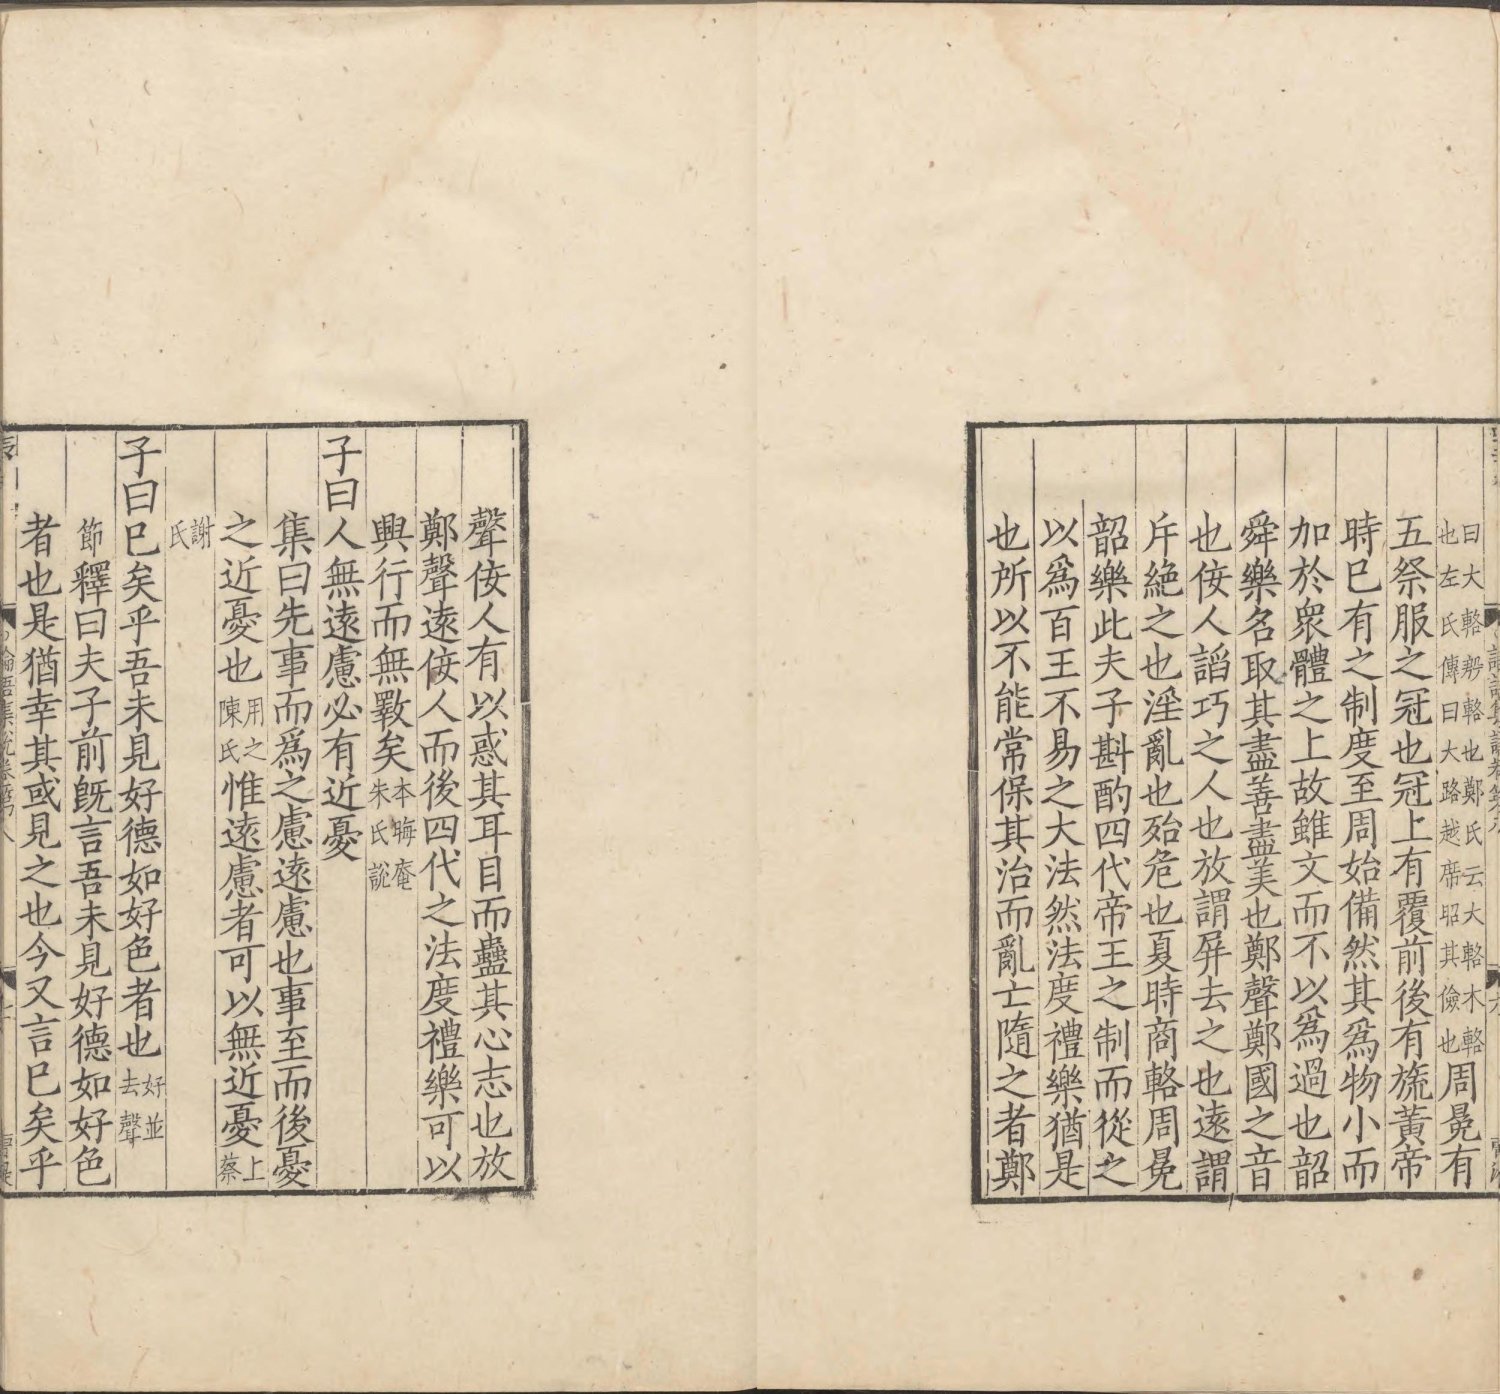 曰大輅郊輅也鄭氏云大輅木輅
也左氏傳曰大路越席昭其儉也
周冕有
五祭服之冠也冠上有覆前後有旒黄帝
時巳有之制度至周始備然其爲物小而
加於衆體之上故雖文而不以爲過也韶
舜樂名取其盡善盡美也鄭聲鄭國之音
也佞人謟巧之人也放謂屏去之也遠謂
斥絶之也淫亂也殆危也夏時商輅周冕
韶樂此夫子斟酌四代帝王之制而從之
以爲百王不易之大法然法度禮樂猶是
也所以不能常保其治而亂亡隨之者鄭
聲佞人有以惑其耳目而蠱其心志也放
鄭聲遠佞人而後四代之法度禮樂可以
興行而無斁矣本晦庵朱氏説
子曰人無遠慮必有近憂
集曰先事而爲之慮遠慮也事至而後憂
之近憂也用之陳氏惟遠慮者可以無近憂上蔡
謝氏
子曰巳矣乎吾未見好德如好色者也好並去聲
節釋曰夫子前旣言吾未見好德如好色
者也是猶幸其或見之也今又言巳矣乎